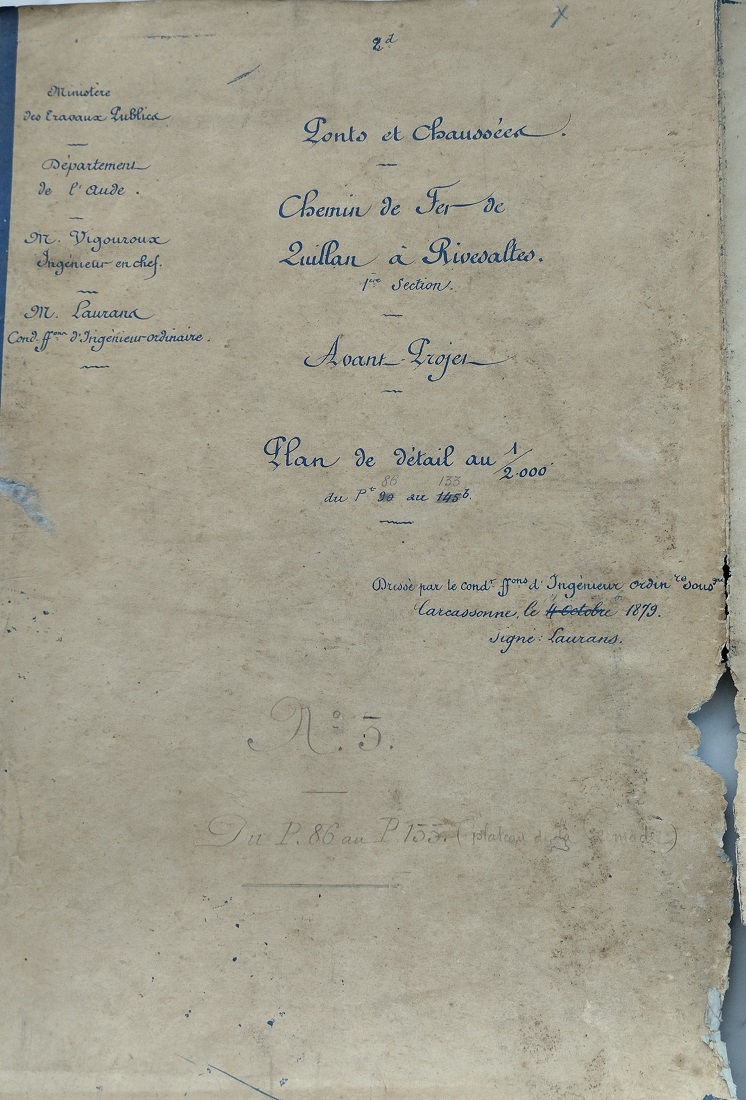 2d
Ministère
des Travaux Publics
Département
de l'Aude.
M. Vigouroux
Ingénieur en chef.
M. Laurans
Cond. ffons d'Ingénieur ordinaire.
Ponts et Chaussées.
Chemin de Fer de
Quillan à Rivesaltes.
1ère Section.
Avant-Projet
Plan de détail au 1/2.000
86 133
du Pt 90 au 145b.
Dressé par le condr ffons d'Ingénieur ordinre sousgné
Carcassonne, le 4 Octobre 1879.
Signé: Laurans.
No. 5.
Du P. 86 au P. 133. (plateau de la